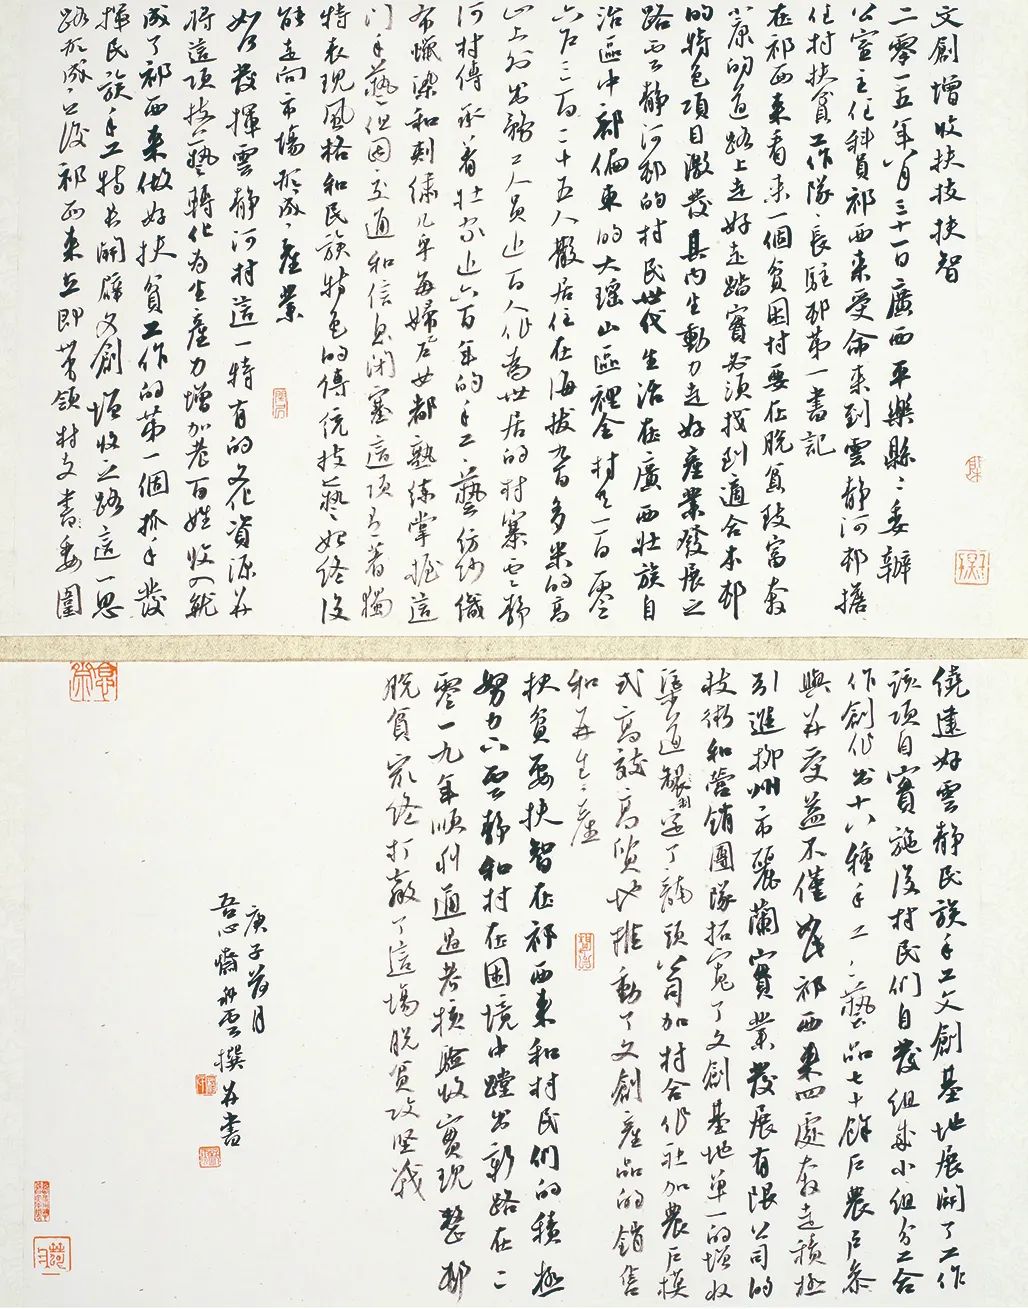 文創增收扶技扶智
二零一五年八月三十一日廣西平樂縣々委辦
公室主任科員祁西來受命來到雲靜河邨擔
任村扶貧工作隊々長駐邨第一書記
在祁西來看來一個貧困村要在脫貧致富奔
小康的道路上走好走踏實必須找到適合本邨
的特色項目激發其內生動力走好產業發展之
路雲靜河邨的村民世代生活在廣西壯族自
治區中部偏東的大瑤山區裡全村又一百零
六戶三百二十五人散居住在海拔九百多米的高
山上外出務工人員近百人作為世居的村寨雲靜
河村傳承着壯家近六百年的手工々藝紡紗織
布蠟染和刺綉几乎每婦女都熟練掌握這
门手藝但因交通和信息闭塞這項有著獨
特表現風格和民族特色的傳統技藝始終沒
能走向市場形成々產業
如何發揮雲靜河村這一特有的文化資源并
將這項技藝轉化為生產力增加老百姓收入就
成了祁西來做好扶貧工作的第一個抓手發
揮民族手工特長開闢文創增收之路這一思
路形成之後祁西來立即帶領村支書委圍
繞建好雲靜民族手工文創基地展開了工作
該項目實施後村民們自發組成小組分工合
作創作出十八種手工々藝品七十餘戶農戶參
與并受益不僅如此祁西來四處奔走積極
引進柳州市麗蘭實業發展有限公司的
技術和營銷團隊拓寬了文創基地單一的增收
渠道製定了龍頭公司加村合作社加農戶模
式高效高質地推動了文創產品的銷售
和再生產
扶貧要扶智在祁西來和村民們的積極
努力下雲靜和村在困境中蹚出新路在二
零一九年順利通過考核驗收實現整邨
脫貧最終打贏了這場脫貧攻堅戰
庚子荷月
吾心齋雲撰并書